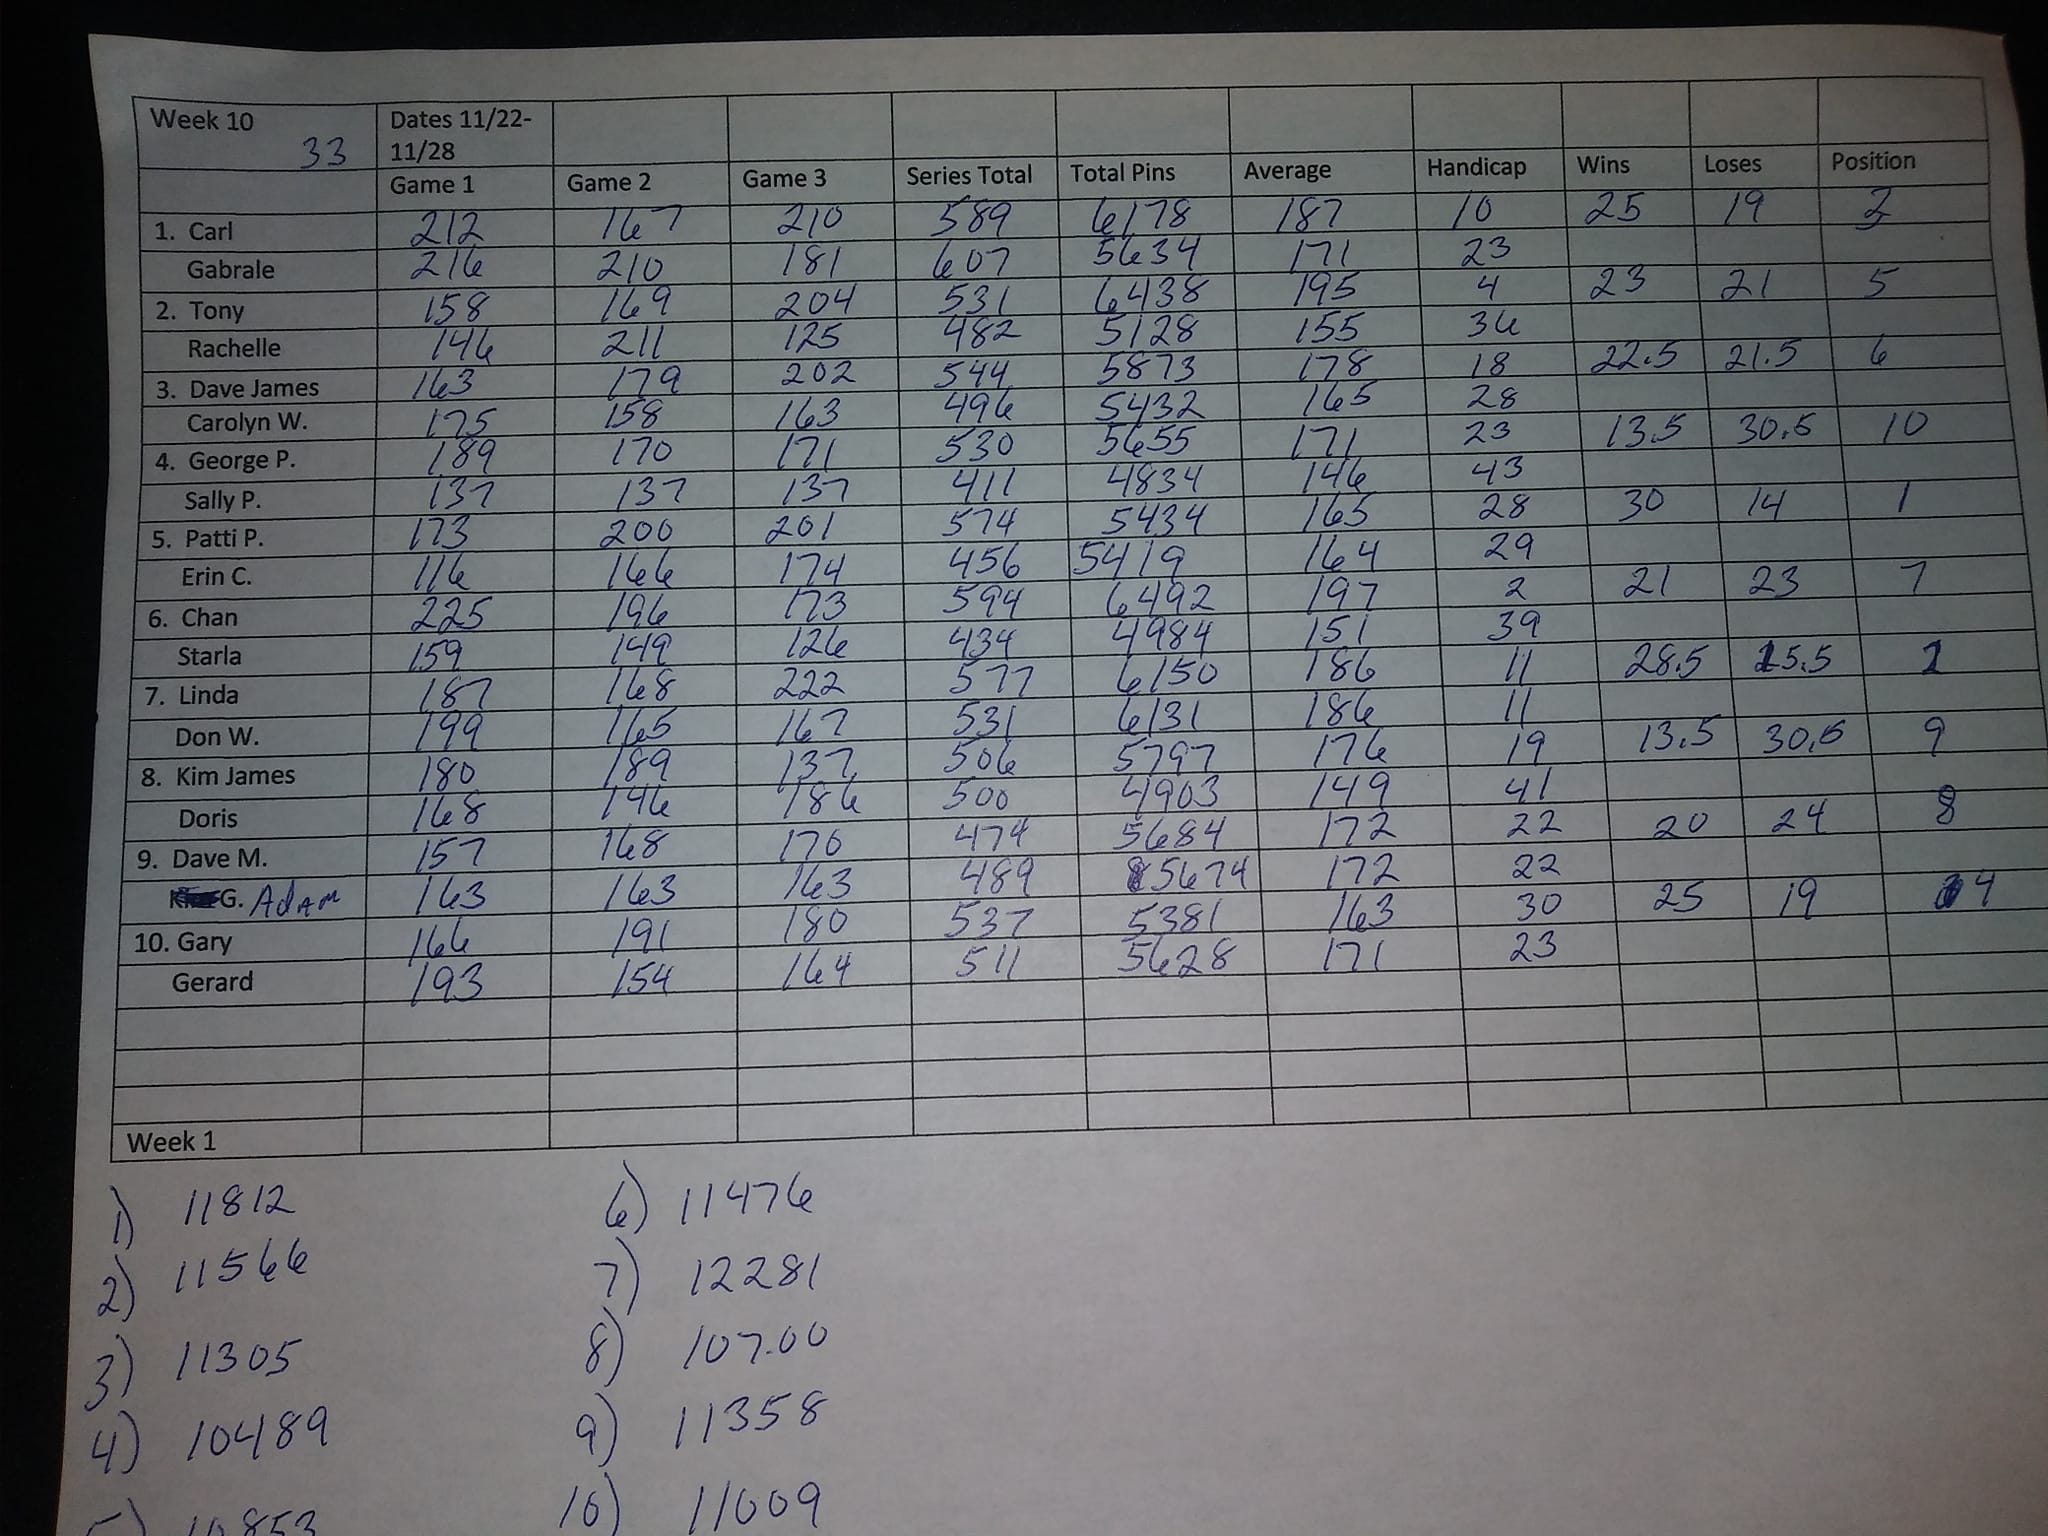 Week 10 33 Dates 11/22-11/28
Game 1 Game 2 Game 3 Series Total Total Pins Average Handicap Wins Loses Position
1. Carl 212 167 210 589 6178 187 10 25 19
Gabrale 216 210 181 607 5634 171 23
2. Tony 158 169 204 531 6438 195 4 23 21 5
Rachelle 146 211 125 482 5128 155 36
3. Dave James 163 179 202 544 5873 178 18 22.5 21.5 6
Carolyn W. 175 158 163 496 5432 165 28
4. George P. 189 170 171 530 5655 171 23 13.5 30.5 10
Sally P. 137 137 137 411 4834 146 43
5. Patti P. 173 200 201 574 5434 165 28 30 14 1
Erin C. 116 166 174 456 5419 164 29
6. Chan 225 196 173 594 6492 197 2 21 23 7
Starla 159 149 126 434 4984 151 39
7. Linda 187 168 222 577 6150 186 11 28.5 15.5
Don W. 199 165 167 531 6131 186 11
8. Kim James 180 189 137 506 5797 176 19 13.5 30.5 9
Doris 168 146 186 500 4903 149 41
9. Dave M. 157 168 170 474 5684 172 22 20 24 8
G. Adam 163 163 163 489 5674 172 22
10. Gary 166 191 180 537 5381 163 30 25 19 4
Gerard 193 154 164 511 5628 171 23
Week 1
1) 11812 6) 11476
2) 11566 7) 12281
3) 11305 8) 107.00
4) 10489 9) 11358
5) 10853 10) 11009